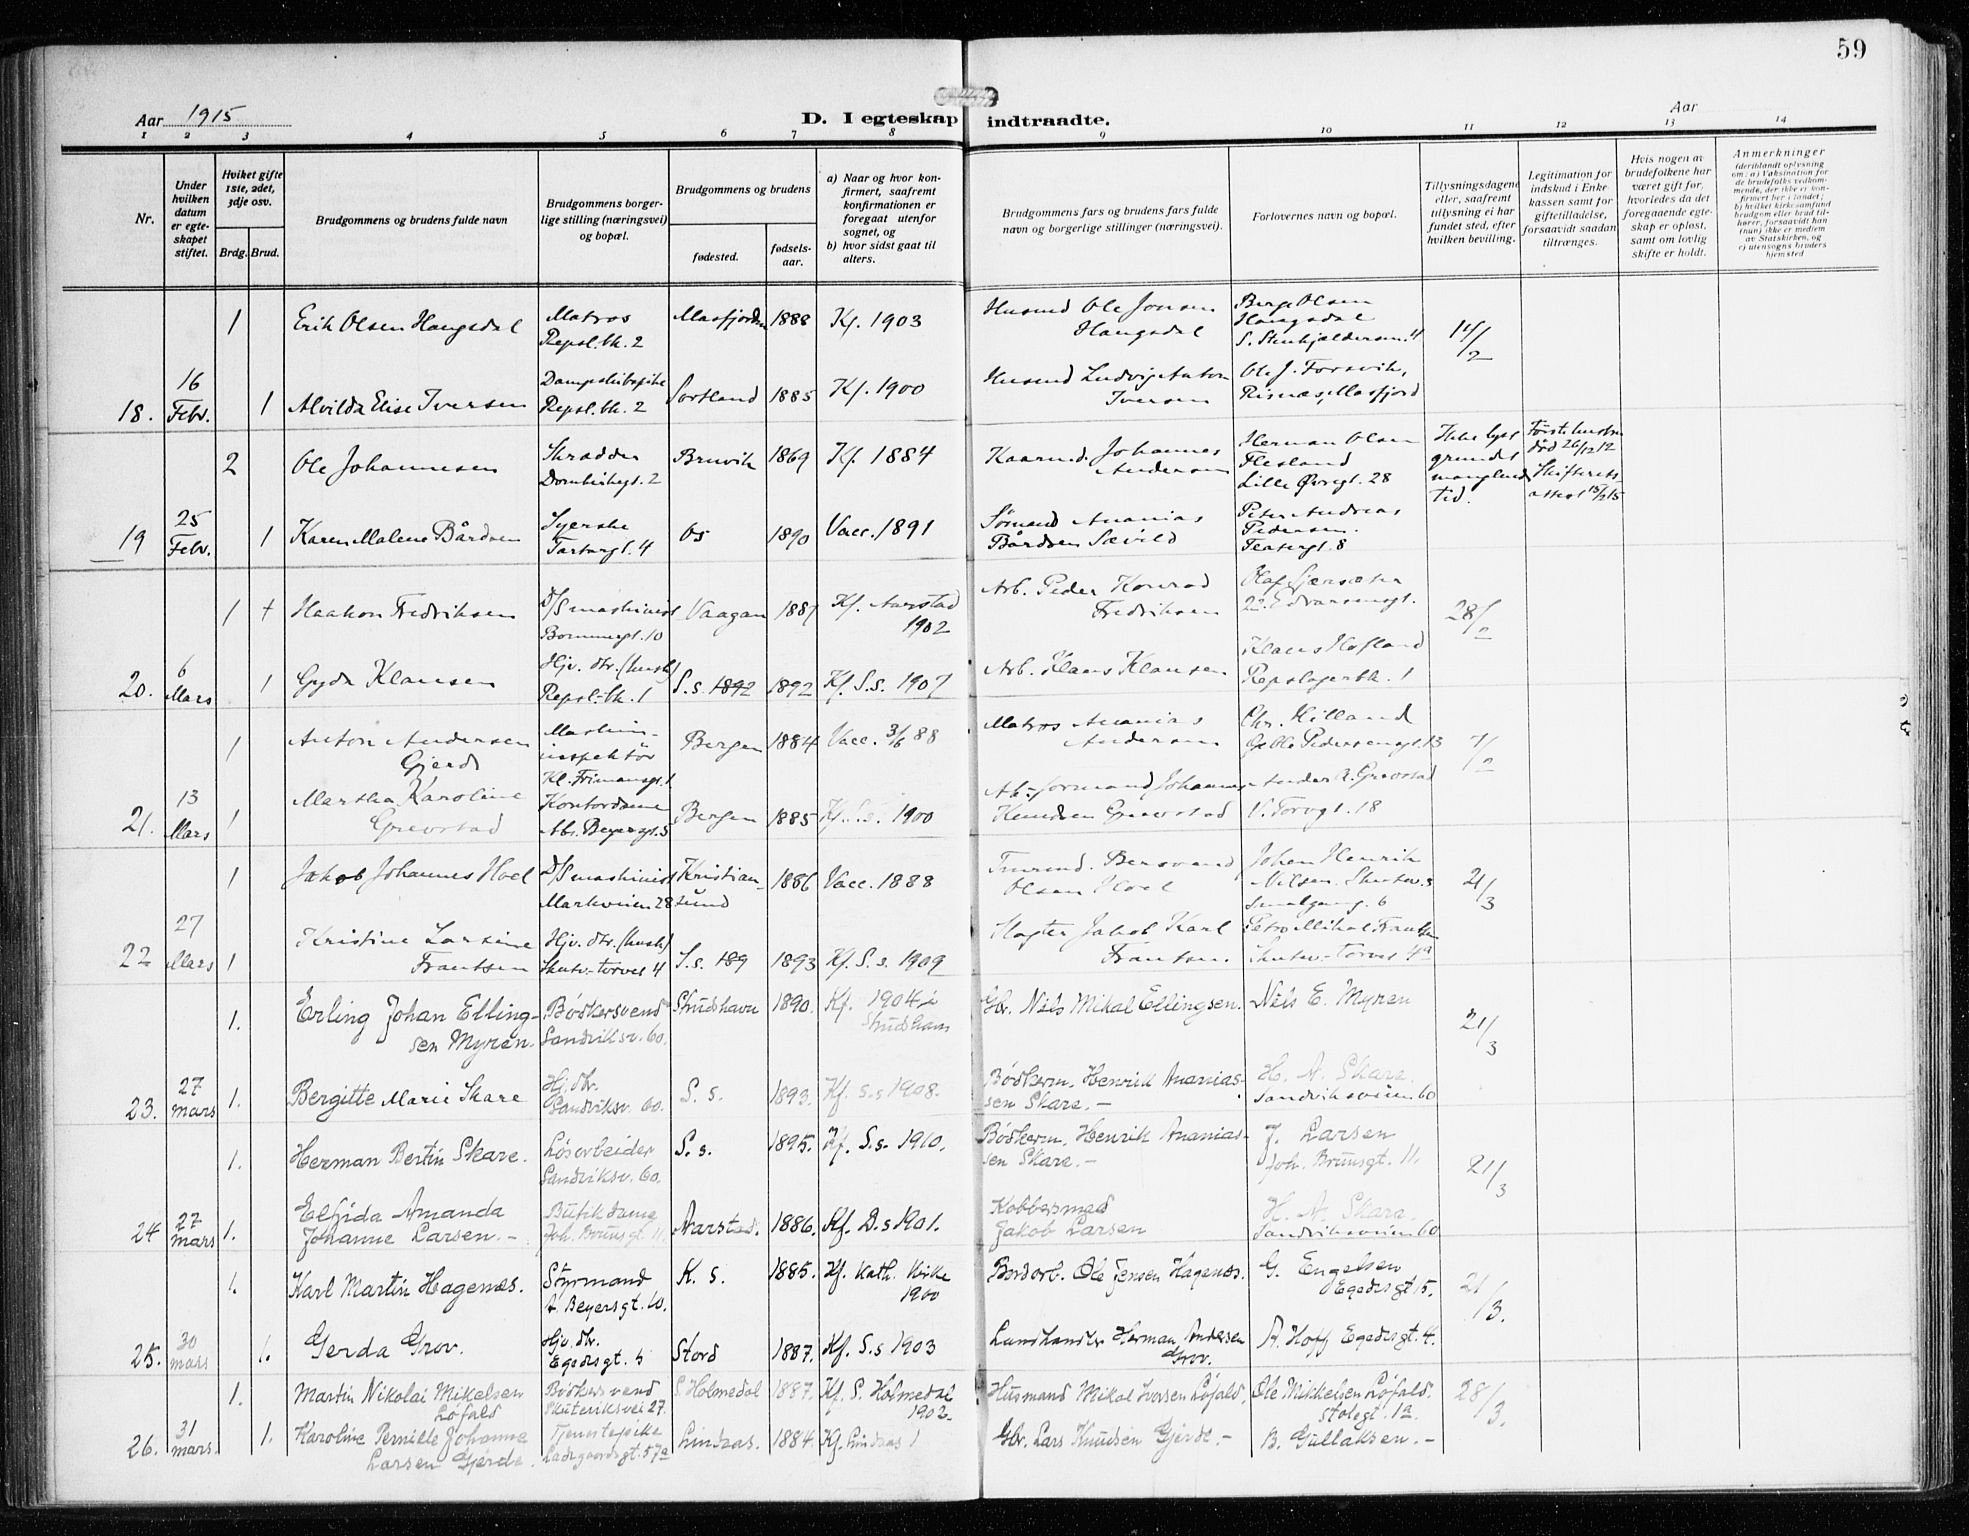 59
Aar 1915
D. I egteskap indtraadte.
Aar
1 2 3 4 5 6 7 8 9 10 11 12 13 14
Nr.
Under hvilken datum er egteskapet stiftet.
Hviket gifte 1ste, 2det, 3dje osv.
Brdg. Brud.
Brudgommens og brudens fulde navn
Brudgommens borgerlige stilling (næringsvei) og bopæl.
Brudgommens og brudens
fødested.
fødselsaar.
a) Naar og hvor konfirmert, saafremt konfirmationen er foregaat utenfor sognet, og
b) hvor sidst gaat til alters.
Brudgommens fars og brudens fars fulde navn og borgerlige stillinger (næringsvei).
Forlovernes navn og bopæl.
Tillysningsdagene eller, saafremt tillysning ei har fundet sted, efter hvilken bevilling.
Legitimation for indskud i Enkekassen samt for giftetilladelse, forsaavidt saadan tiltrænges.
Hvis nogen av brudefolkene har været gift før, hvorledes da det foregaaende egteskap er opløst, samt om lovlig skifte er holdt.
Anmerkninger
(deriblandt oplysning om: a) Vaksination for de brudefolks vedkommende, der ikke er konfirmert her i landet; b) hvilket kirkesamfund brudgom eller brud tilhører, forsaavidt han (hun) ikke er medlem av Statskirken, og c) utensogns bruders hjemsted
1 Erik Olsen Haugsdal Matros Repsl.bk. 2 Masfjorden 1888 Kf. 1903 Husmd Ole Jonsen Haugsdal Berge Olsen Haugsdal 14/2
18. 16 Febr. 1 Alvilda Elise Iversen Repsl.bk. 2 Sortland 1885 Kf. 1900 Husmd Ludvig Anton Iversen Ole J. Forsvik, Risnæs, Masfjord
2 Ole Johannesen Skrædder Dombkirkegt. 2 Bruvik 1869 Kf. 1884 Johannes Andersen Herman Olsen Flesland Lille Øvregt. 28 Ikke lyst grundet manglende tid. Første hustru død 26/12 12 Skifteretsattest
19 25 Febr. 1 Karen Malene Bårdsen Syerske Tartargt. 4 Os 1890 Vacc. 1891 Ananias Bårdsen Sævild Peter Andreas Pedersen. Teatergt. 8
1 + Haakon Fredriksen D/S maskinist 10 Vaagan 1887 Kf. Aarstad 1902 Arb. Peder Konrad Fredriksen 28/2
20. 6 Mars 1 Gyda Klausen Hjv. dtr. (hush) Repsl.bk. 1 S.s. 1892 1892 Kf. S.s. 1907 Arb. Klaus Klausen Klaus Hofland Repslagerbk. 1
1 Anton Andersen Gjerde Maskininspektør Kl. Frimansgt. 1 Bergen 1884 Vacc. 3/6 88 Matros Ananias Andersen Chr. Hilland Gabble Pedersensgt. 13 7/2
21. 13 Mars 1 Martha Karoline Grevstad Kontordame Abs. Beyersgt. 5 Bergen 1885 Kf. S.s. 1900 Johannes Knudsen Grevstad Anders A. Grevstad V. Torvgt. 18
1 Jakob Johannes Hoel D/S maskinist Markveien 28 Kristiansund 1886 Vacc. 1888 Olsen Hoel Johan Henrik Nilsen 21/3
22 27 Mars 1 Kristine Larsine Frantsen Hjv. dtr. (hush) Skutev-torvet 4 S.s. 189 1893 Kf. S.s. 1909 Slagter Jakob Karl Frantsen. Petro Mikal Frantsen Skutev-torvet 4a
1. Erling Johan Ellingsen Myren. Bødkersvend Sandviksv. 60. Skudshavn 1890. Kf. 1904 i Skudshavn Gbr. Nils Mikal Ellingsen. Nils E. Myren 21/3
23. 27 mars 1. Bergitte Marie Skare Hjv. dtr. Sandviksv. 60. S. s. 1893. Kf. S.s 1908. Bødkerm. Henrik Ananiassen Skare. - H. A. Skare. Sandviksveien 60
1. Herman Bertin Skare. Løsarbeider Sandviksv. 60. S. s. 1895. Kf. S.s. 1910. Bødkerm. Henrik Ananiassen Skare. - J. Larsen Joh. Bruusgt. 11. 21/3
24 27 mars 1. Elfrida Amanda Johanne Larsen. - Butikdame Joh. Bruusgt. 11. Aarstad. 1886. Kf. D.s 1901. Kobbersmed Jakob Larsen H. A. Skare. Sandviksveien 60
1. Karl Martin Hagenæs. Styrmand A. Beyersgt. 10. K. s. 1885. Kf. Kath. Kirke 1900 Bordarb. Ole Jensen Hagenæs. G. Engelsen Egedesgt 15. 21/3.
25. 30 mars 1. Gerda Grov. Hjv. dtr. Egedesgt. 5 Stord 1887. Kf. S.s 1903 Landhandler Herman Andersen Grov. A. Hopp Egedesgt. 4.
1. Martin Nikolai Mikelsen Løfald Bødkersvend Skuteviksvei 27. S. Holmedal 1887. Kf. S. Holmedal 1902. Husmand Mikal Iversen Løfald. Ole Mikkelsen Løfald. Stølegt. 1a. 28/3.
26. 31 mars. 1. Karoline Pernille Johanne Larsen Gjerde. Tjenestepike Ladegaardsgt. 57a Lindaas. 1884. Kf. Lindaas Gbr. Lars Knudsen Gjerde. - B. Gullaksen. -